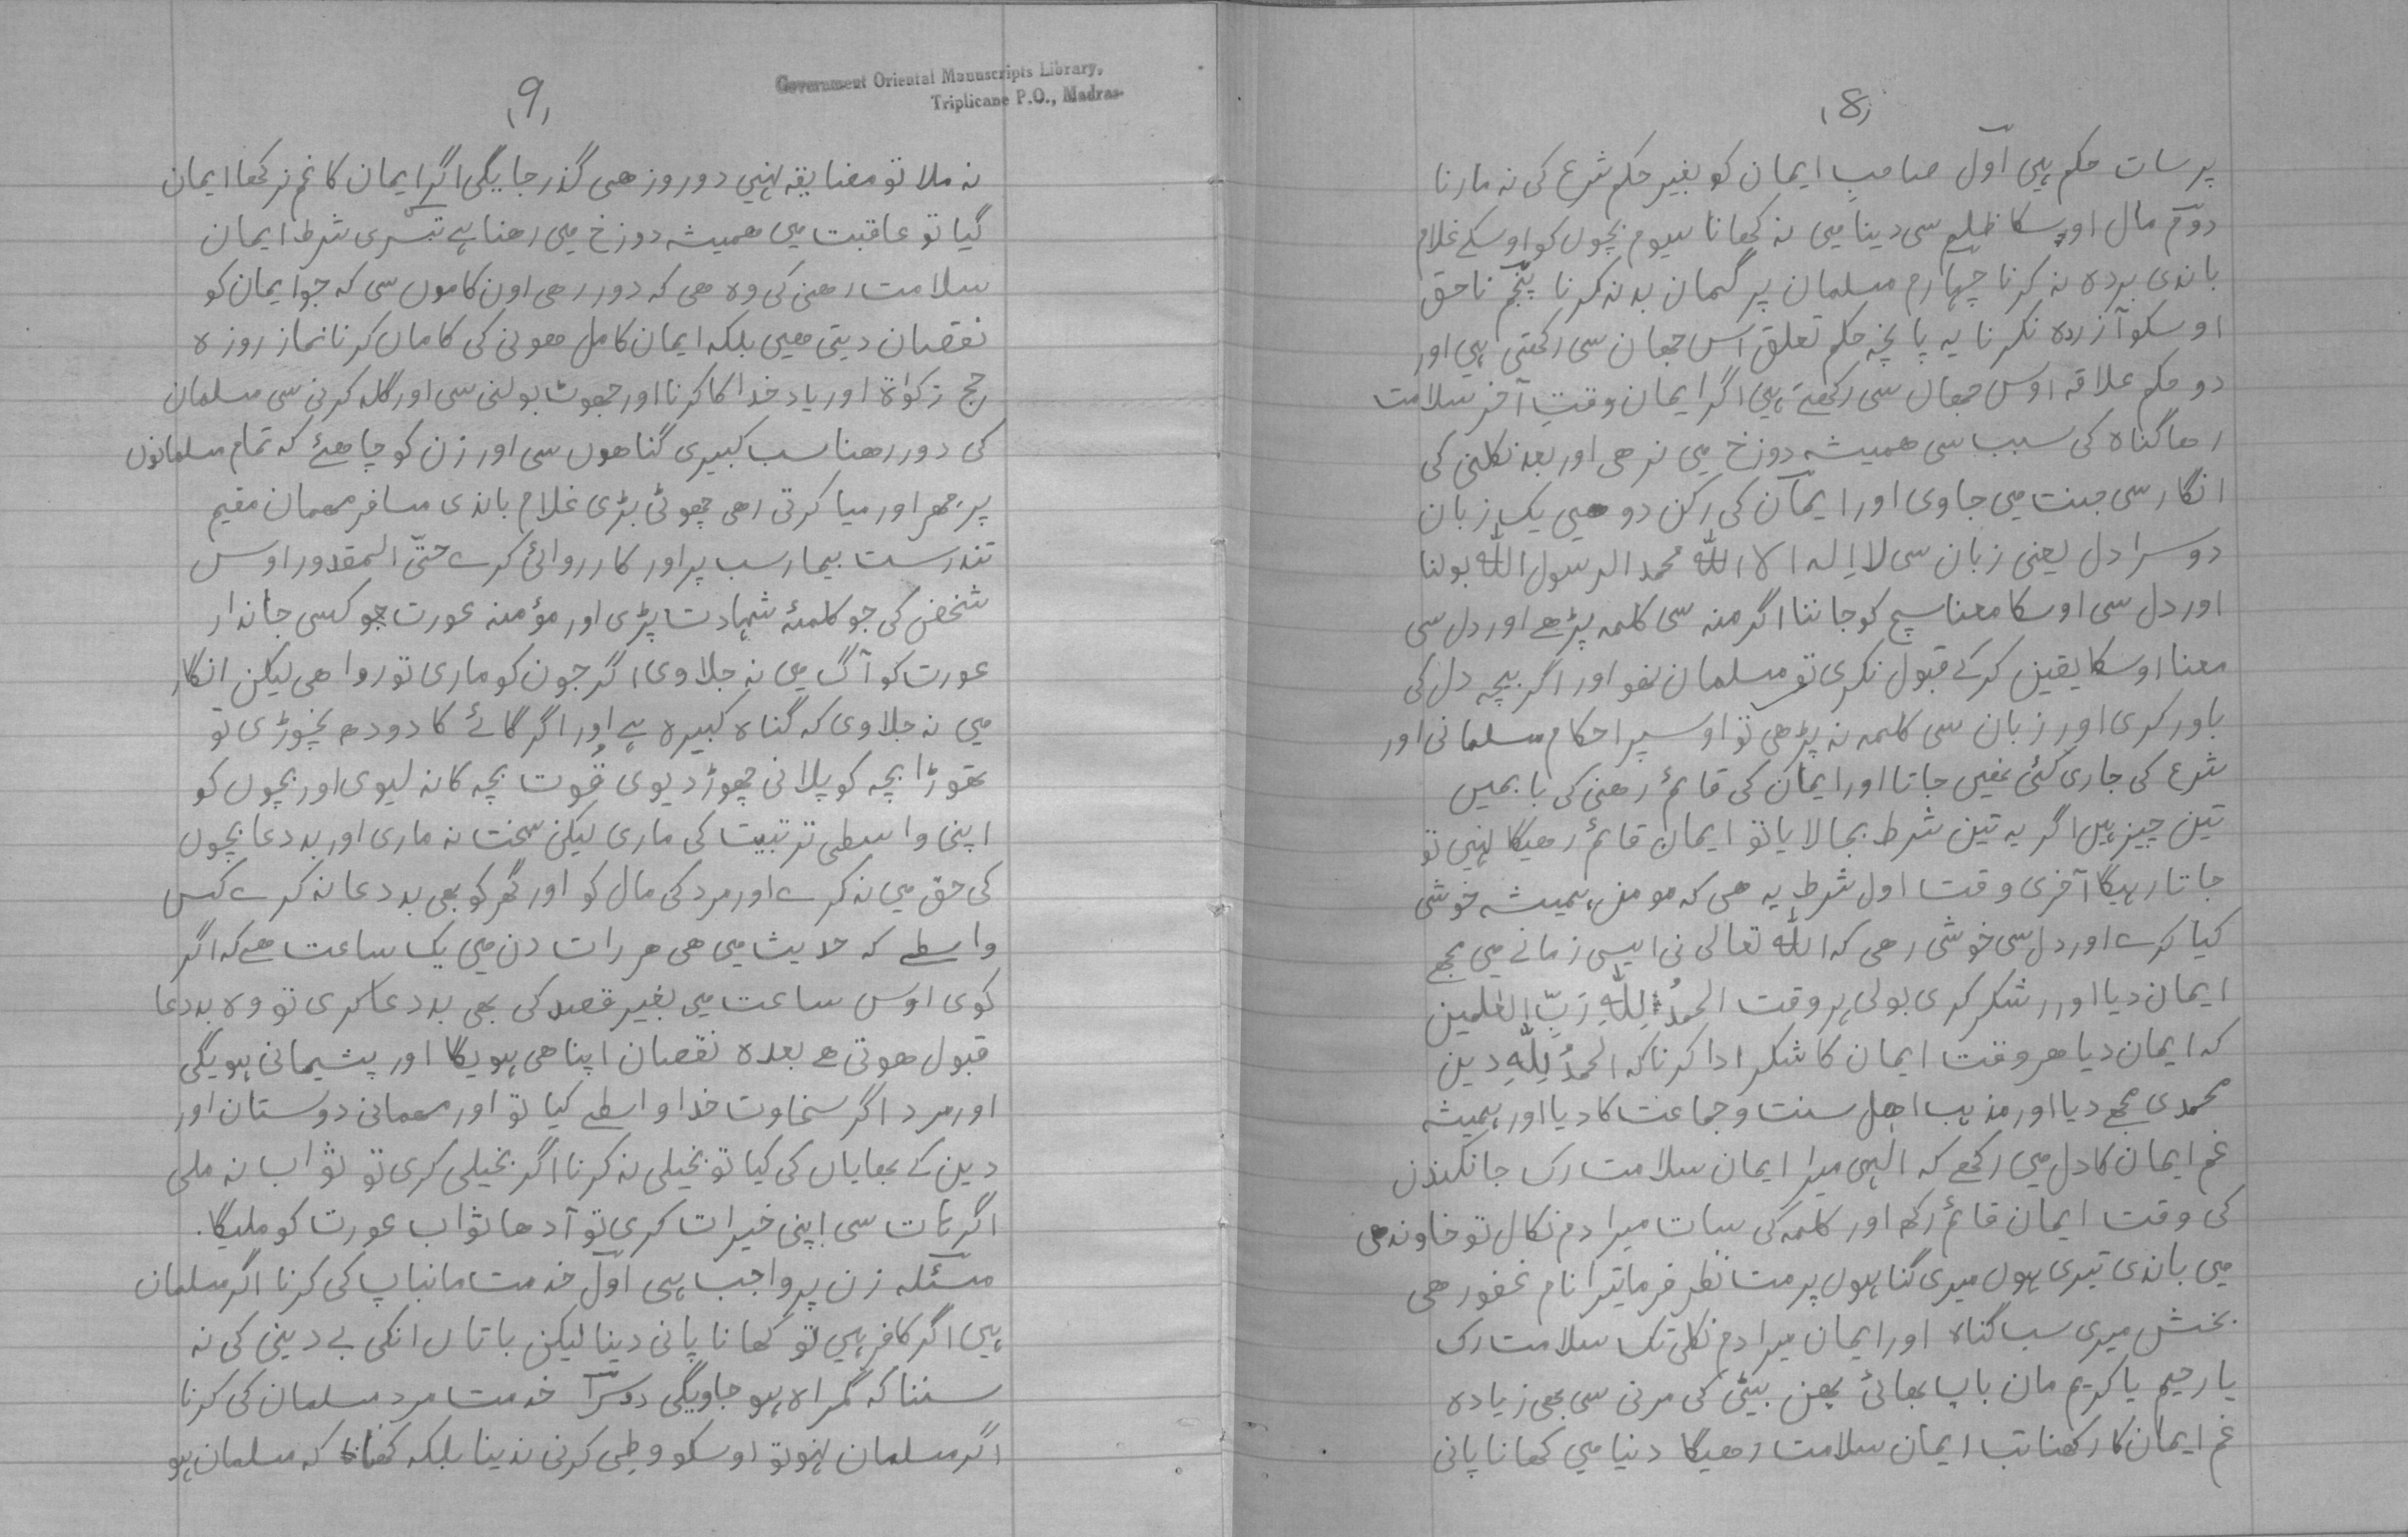 (8)
پر سات حکم ہیں اول صاحبِ ایمان کو بغیر حکم شرع کی نہ مارنا
دوّم مال اوسکا ظلم سی دینا میں نہ کھانا سیوم بچوں کو اوسکے غلام
باندی بردہ نہ کرنا چہارم مسلمان پر گمان بد نہ کرنا پنجم ناحق
اوسکو آزردہ نکرنا یہ پانچہ حکم تعلق اس جہان سی رکھتی ہیں اور
دو حکم علاقہ اوس جہاں سی رکھتے ہیں اگر ایمان وقتِ آخر سلامت
رھا گناہ کی سبب سی ھمیشہ دوزخ میں نرھی اور بعد نکلنی کی
انگار سی جنت میں جاوی اور ایمان کی رکن دو ھیں یک زبان
دوسرا دل یعنی زبان سی لا اِلہ الا اللہ محمد الرسول اللہ بولنا
اور دل سی اوسکا معنا سچ کو جاننا اگر منہ سی کلمہ پڑھے اور دل سی
معنا اوسکا یقین کرکے قبول نکری تو مسلمان نھو اور اگر بیچہ دل کی
باور کری اور زبان سی کلمہ نہ پڑھی تو اوسپر احکام مسلمانی اور
شرع کی جاری کئی نھیں جاتا اور ایمان کی قائم رھنی کی با بمیں
تین چیز ہیں اگر یہ تین شرط بجا لایا تو ایمان قائم رھیگا نہیں تو
جاتا رہیگا آخری وقت اول شرط یہ ھی کہ مومن ہمیشہ خوشی
کیا کرے اور دل سی خوشی رھی کہ اللہ تعالی نی ایسی زمانے میں مجھے
ایمان دیا اور شکر کری بولی ہر وقت الحمدُ لِلّٰهِ رَبِّ العٰلمین
کہ ایمان دیا ھر وقت ایمان کا شکر ادا کرنا کہ الحمدُ لِلّٰهِ دین
محمدی مجھے دیا اور مذہب اھل سنت و جماعت کا دیا اور ہمیشہ
غم ایمان کا دل میں رکھے کہ الٰہی میرا ایمان سلامت رک جانکندن
کی وقت ایمان قائم رکھ اور کلمہ کی سات میرا دم نکال تو خاوند ھی
میں باندی تیری ہوں میری گناہوں پر مت نظر فرما تیرا نام غفور ھی
بخش میری سب گناہ اور ایمان میرا دم نکلی تک سلامت رک
یا رحیم یا کریم مان باپ بھائی بھن بیٹی کی مرنی سی بھی زیادہ
غم ایمان کا رکھنا تب ایمان سلامت رھیگا دنیا میں کھانا پانی
Government Oriental Manuscripts Library,
Triplicane P.O., Madras-
(9)
نہ ملا تو مضایقہ نہیں دو روز ھی گذر جایگی اگر ایمان کا غم نرکھا ایمان
گیا تو عاقبت میں ھمیشہ دوزخ میں رھنا ہے تیسری شرط ایمان
سلامت رھنی کی وہ ھی کہ دور رھی اون کاموں سی کہ جو ایمان کو
نقصان دیتی ھیں بلکہ ایمان کامل ھونی کی کاماں کرنا نماز روزہ
حج زکواۃ اور یاد خدا کا کرنا اور جھوٹ بولنی سی اور گلہ کرنی سی مسلمان
کی دور رھنا سب کبیری گناھوں سی اور زن کو چاھئے کہ تمام مسلمانوں
پر مہر اور میا کرتی رھی چھوٹی بڑی غلام باندی مسافر مھمان مقیم
تندرست بیمار سب پر اور کارروائی کرے حتّی المقدور اوس
شخص کی جو کلمئہ شہادت پڑی اور مؤمنہ عورت جو کسی جاندار
عورت کو آگ میں نہ جلاوی اگر جون کو ماری تو روا ھی لیکن انگار
میں نہ جلاوی کہ گناہ کبیرہ ہے اور اگر گائے کا دودھ نچوڑی تو
تھوڑا بچہ کو پلانی چھوڑ دیوی قُوت بچہ کا نہ لیوی اور بچوں کو
اپنی واسطی تربیت کی ماری لیکن سخت نہ ماری اور بد دعا بچوں
کی حق میں نہ کرے اور مرد کی مال کو اور گھر کو بھی بد دعا نہ کرے کس
واسطے کہ حدیث میں ھی ھر رات دن میں یک ساعت ھے کہ اگر
کوی اوس ساعت میں بغیر قصد کی بھی بد دعا کری تو وہ بد دعا
قبول ھوتی ھے بعدہ نقصان اپنا ھی ہویگا اور پشیمانی ہویگی
اور مرد اگر سخاوت خدا واسطے کیا تو اور مھمانی دوستان اور
دین کے بھایاں کی کیا تو بخیلی نہ کرنا اگر بخیلی کری تو ثواب نہ ملی
اگر ہات سی اپنی خیرات کری تو آدھا ثواب عورت کو ملیگا.
مسئلہ زن پر واجب ہی اوّل خدمت مانباپ کی کرنا اگر مسلمان
ہیں اگر کافر ہیں تو کھانا پانی دینا لیکن باتاں انکی بے دینی کی نہ
سننا کہ گمراہ ہو جاویگی دوسرا خدمت مرد مسلمان کی کرنا
اگر مسلمان نہو تو اوسکو وطی کرنی ندینا بلکہ کہنا کہ مسلمان ہو